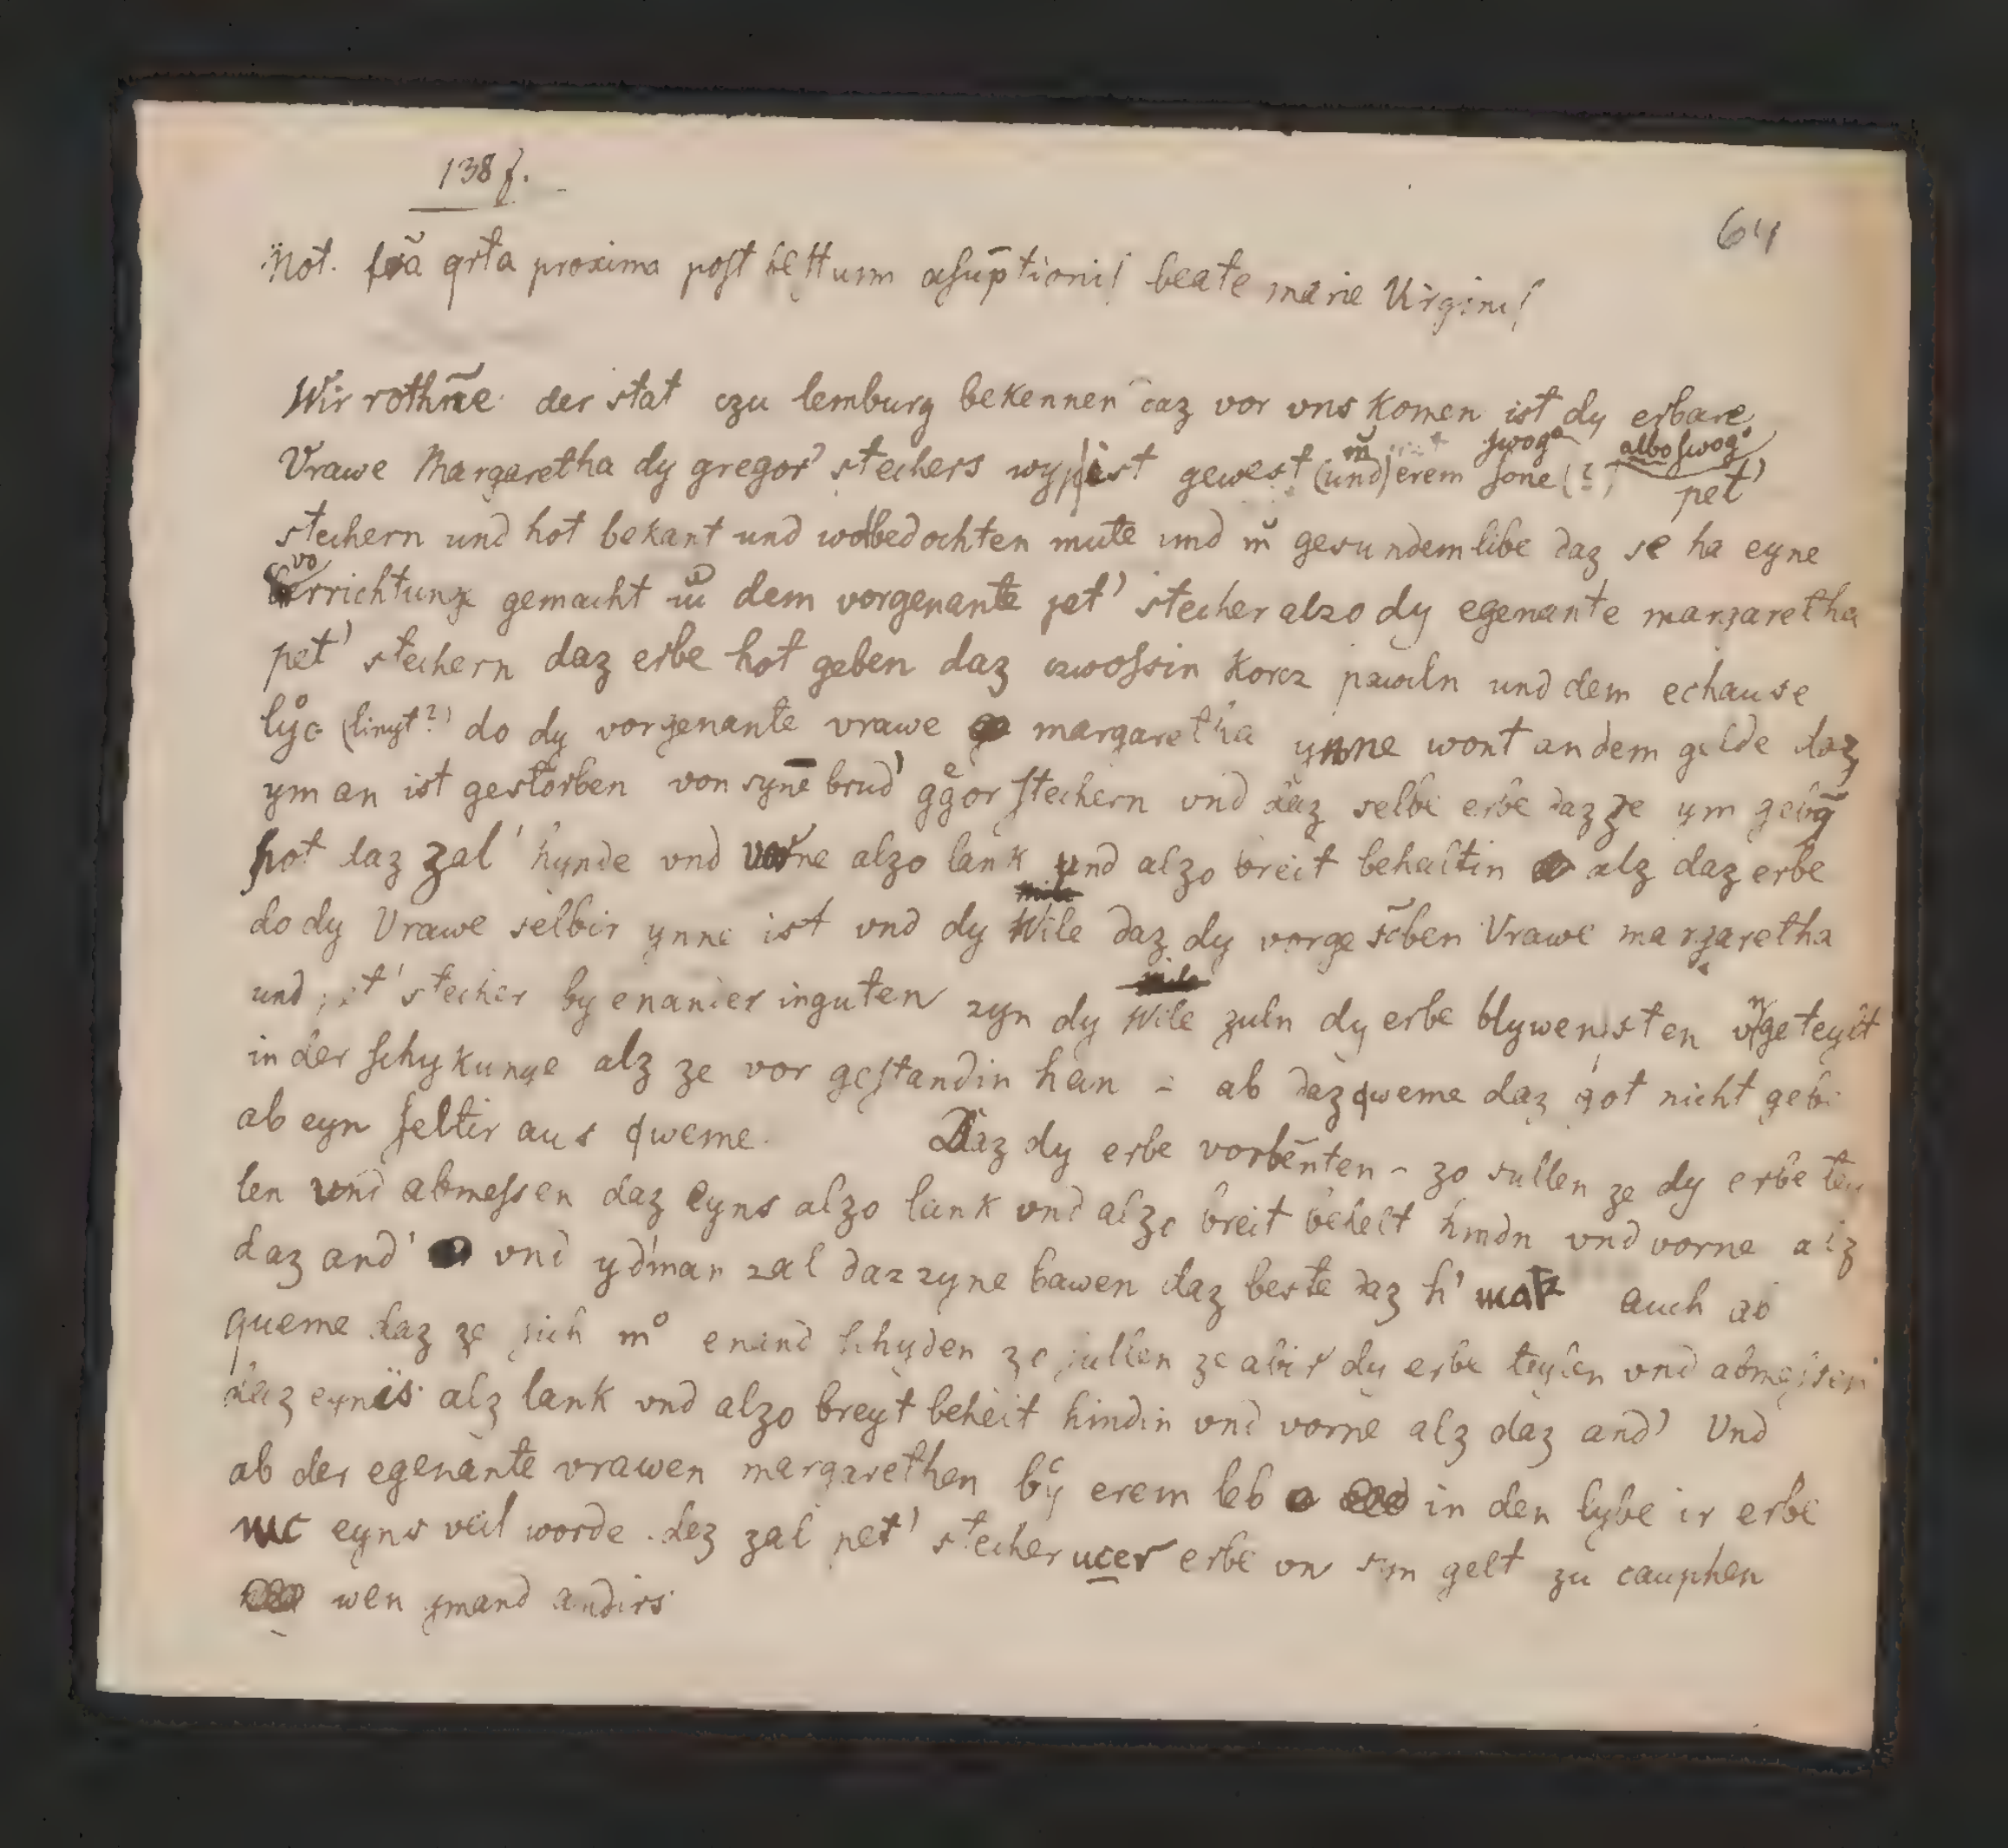 138 f.
64
Not. fr̃a qrta proxima post festum asup̄tionis beate marie Virginis
Wir rothm̃e der stat czu lemburg bekennen daz vor vns komen ist dy erbare
swog albo swog'
Vrawe Margaretha dy gregor' stechers wyp ist gewest (und) erem sone (?) pet'
stechern und hot bekant und wolbedochten mute und m̃ gesundem libe daz se ha eyne
vo
verrichtung gemacht m̃ dem vorgenante pet' stecher alzo dy egenante margaretha
pet' stechern daz erbe hot geben daz czwossin korcz pawln und dem echause
lyc (linyt?) do dy vorgenante vrawe margaretha ynne wont an dem gelde daz
ym an ist gestorben von synē brud' ggor stechern vnd daz selbe erbe daz ze ym gebn̄
hot daz zal hynde vnd vorne alzo lank und alzo breit behaltin alz daz erbe
do dy Vrawe selbir ynne ist vnd dy Wile daz dy vorgesc̃ben Vrawe margaretha
und pet' stecher by enander in guten zyn dy Wile zuln dy erbe blywen sten vngeteylt
in der schykunge alz ze vor gestandin han – ab daz qweme daz got nicht gebe
ab eyn feltir aus qweme. Daz dy erbe vorbēnten – zo sullen ze dy erbe tey
len und abmessen daz eyns alzo lank vnd alzo breit behelt hindn vnd vorne alz
daz and' vnd yd'man zal daz zyne bawen daz beste daz h' mak auch ab
queme daz ze sich m° enand schyden zo sullen ze abir dy erbe teylen vnd abmessen
daz eynis alz lank vnd alzo breyt behelt hindin vnd vorne alz daz and' Vnd
ab der egenante vrawen margarethen by erem leb in den lybe ir erbe
eyns veil worde dez zal pet' stecher ucer erbe vm sin gelt zu cauphen
wen ymand andirs